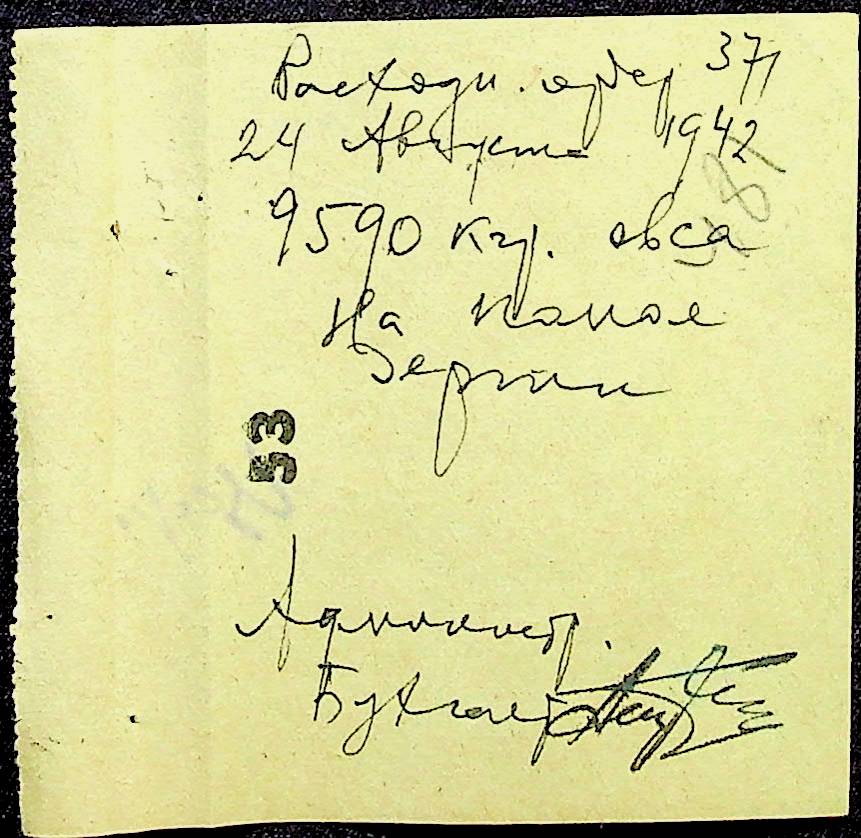 Расходн. ордер 371
24 Августа 1942
9590 кгр. овса
На помол
53
Администр.
Бухгалтер